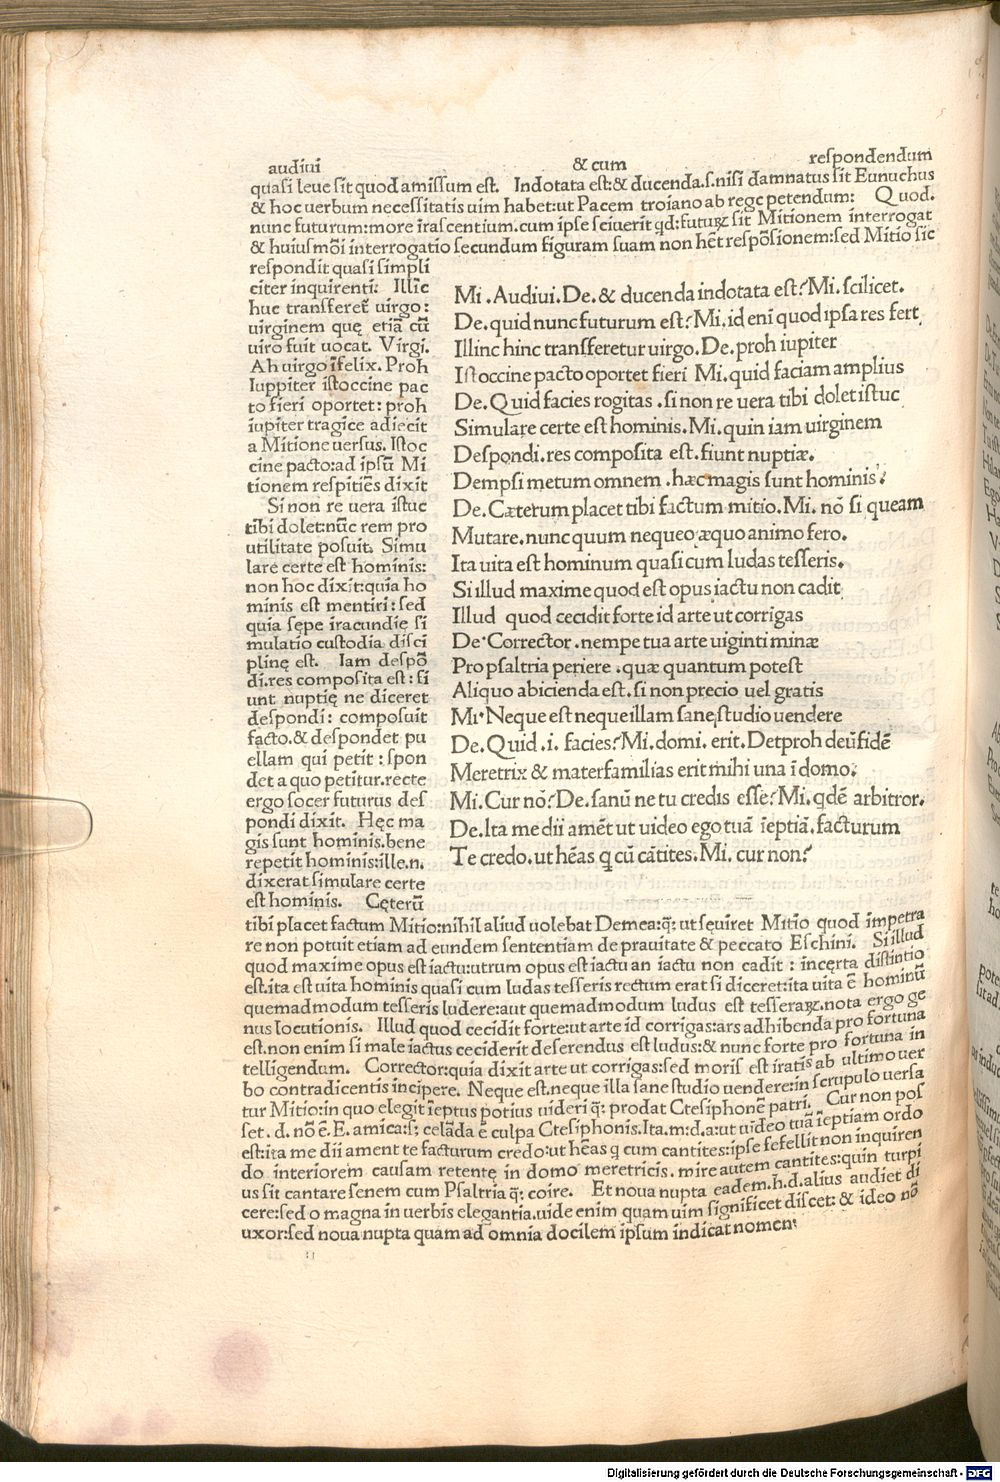 audiui & cum respondendum
quasi leue sit quod amissum est. Indotata est:& ducenda.s.nisi damnatus sit Eunuchus
& hoc uerbum necessitatis uim habet:ut Pacem troiano ab rege petendum: Quod.
nunc futurum:more irascentium.cum ipse sciuerit qd:futurꝝ sit Mitionem interrogat
& huiusmōi interrogatio secundum figuram suam non hēt respōsionem:sed Mitio sic
respondit quasi simpli
citer inquirenti: Illīc
huc transferet̄ uirgo:
uirginem quę etiā cū
uiro fuit uocat. Virgi.
Ah uirgo īfelix. Proh
Iuppiter istoccine pac
to fieri oportet: proh
iupiter tragice adiecit
a Mitione uersus. Istoc
cine pacto:ad ipsū Mi
tionem respitiēs dixit
Si non re uera istuc
tibi dolet:nūc rem pro
utilitate posuit. Simu
lare certe est hominis:
non hoc dixit:quia ho
minis est mentiri:sed
quia sępe iracundię si
mulatio custodia disci
plinę est. Iam despō
di.res composita est:fi
unt nuptię ne diceret
despondi: composuit
facto.& despondet pu
ellam qui petit:spon
det a quo petitur.recte
ergo socer futurus des
pondi dixit. Hęc ma
gis sunt hominis.bene
repetit hominis:ille.n.
dixerat simulare certe
est hominis. Cęterū
Mi.Audiui.De.& ducenda indotata est?Mi.scilicet.
De.quid nunc futurum est?Mi.id eni quod ipsa res fert
Illinc hinc transferetur uirgo.De.proh iupiter
Istoccine pacto oportet fieri Mi.quid faciam amplius
De.Quid facies rogitas.si non re uera tibi dolet istuc
Simulare certe est hominis.Mi.quin iam uirginem
Despondi.res composita est.fiunt nuptiæ.
Dempsi metum omnem.hæc magis sunt hominis?
De.Cæterum placet tibi factum mitio.Mi.nō si queam
Mutare.nunc quum nequeo æquo animo fero.
Ita uita est hominum quasi cum ludas tesseris.
Si illud maxime quod est opus iactu non cadit
Illud quod cecidit forte id arte ut corrigas
De.Corrector.nempe tua arte uiginti minæ
Pro psaltria periere.quæ quantum potest
Aliquo abicienda est.si non precio uel gratis
Mi.Neque est neque illam sane studio uendere
De.Quid.i.facies?Mi.domi.erit.Detproh deūfidē
Meretrix & materfamilias erit mihi una ī domo.
Mi.Cur nō?De.sanū ne tu credis esse?Mi.qdē arbitror.
De.Ita me dii amēt ut uideo ego tuā īeptiā.facturum
Te credo.ut hēas q̄ cū cātites.Mi.cur non?
tibi placet factum Mitio:nihil aliud uolebat Demea:q̄; ut sęuiret Mitio quod impetra
re non potuit etiam ad eundem sententiam de prauitate & peccato Eschini. Si illud
quod maxime opus est iactu:utrum opus est iactu an iactu non cadit : incęrta distintio
est.ita est uita hominis quasi cum ludas tesseris rectum erat si diceret:ita uita ē hominū
quemadmodum tesseris ludere:aut quemadmodum ludus est tesseraꝝ.nota ergo ge
nus locutionis. Illud quod cecidit forte:ut arte id corrigas:ars adhibenda pro fortuna
est.non enim si male iactus ceciderit deserendus est ludus:& nunc forte pro fortuna in
telligendum. Corrector:quia dixit arte ut corrigas:sed moris est iratis ab ultimo uer
bo contradicentis incipere. Neque est.neque illa sane studio uendere:in scrupulo uersa
tur Mitio:in quo elegit īeptus potius uideri q̄; prodat Ctesiphonē patri. Cur non pos
set.d.nō ē.E.amica:s; celāda ē culpa Ctesiphonis.Ita.m:d.a:ut uideo tuā īeptiam ordo
est:ita me dii ament te facturum credo:ut hēas q cum cantites:ipse fefellit non inquiren
do interiorem causam retentę in domo meretricis.mire autem cantites:quin turpi
us sit cantare senem cum Psaltria q̄; coire. Et noua nupta eadem.h.d.alius audiet di
cere:sed o magna in uerbis elegantia.uide enim quam uim significet discet:& ideo nō
uxor:sed noua nupta quam ad omnia docilem ipsum indicat nomen:
Digitalisierung gefördert durch die Deutsche Forschungsgemeinschaft - DFG